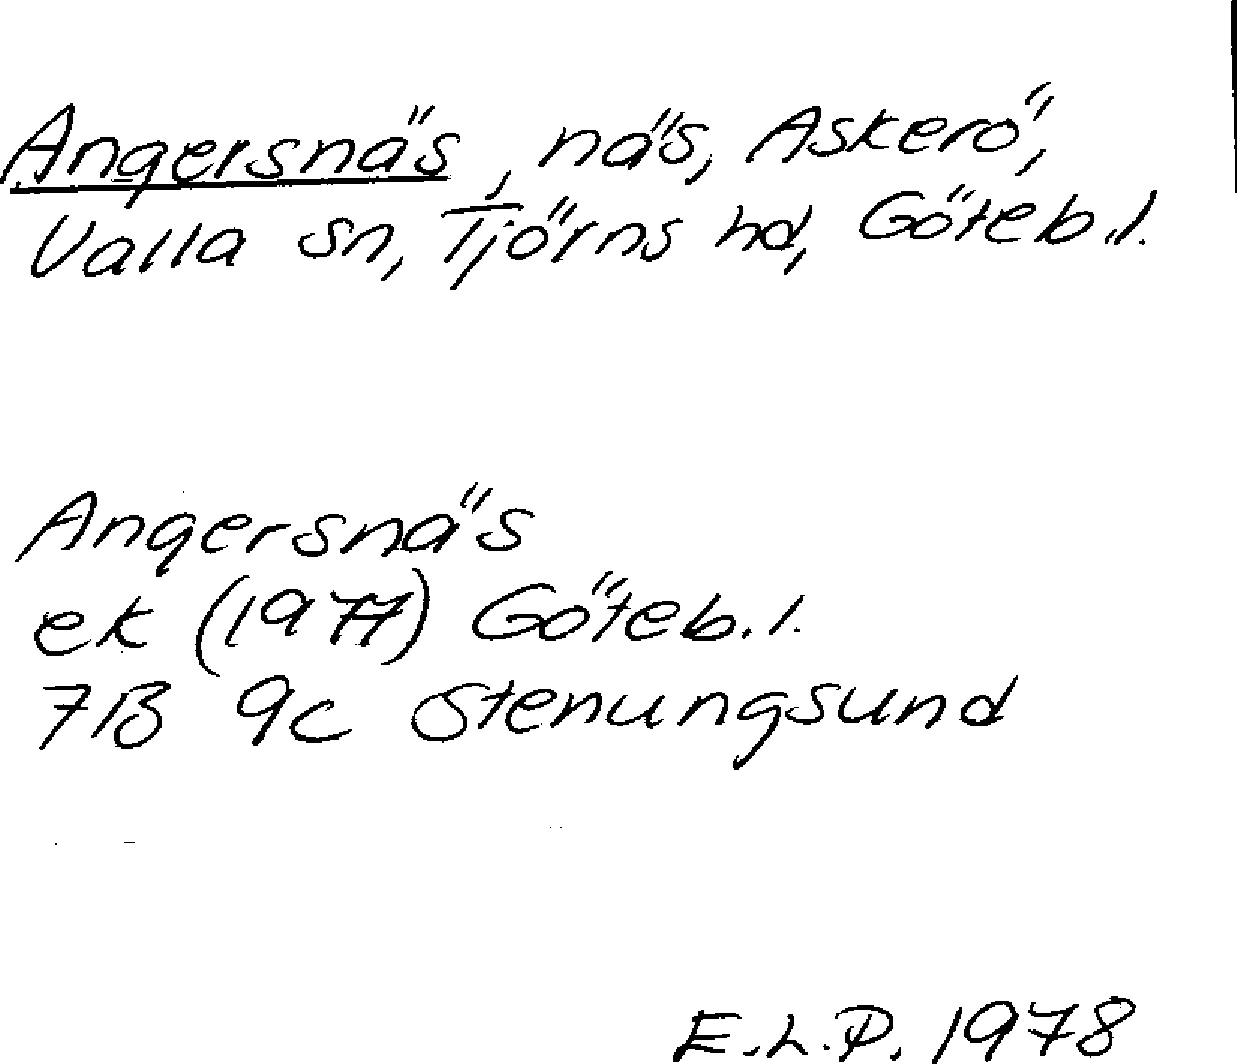 Angersnäs, näs, Askerö,
Valla sn, Tjörns hd, Göteb. l.
Angersnäs
ek (1977) Göteb. l.
7B 9c Stenungsund
E.L.P. 1978